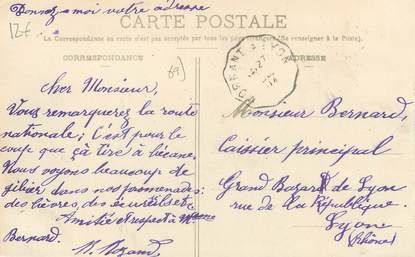 Donnez-moi votre adresse
12€
CARTE POSTALE
La Correspondance au recto n'est pas acceptée par tous les pays étrangers (Se renseigner à la Poste).
CORRESPONDANCE
ADRESSE
69)
Cher Monsieur,
Vous remarquerez la route
nationale; C'est pour le
coup que çà tire à
Nous voyons beaucoup de
gibier dans nos promenades:
des lièvres, des écureuils etc
Amitié et respect à Mme
Bernard.
Monsieur Bernard,
Caissier principal
Grand Bazar de Lyon
rue de la République.
Lyon
(Rhône)